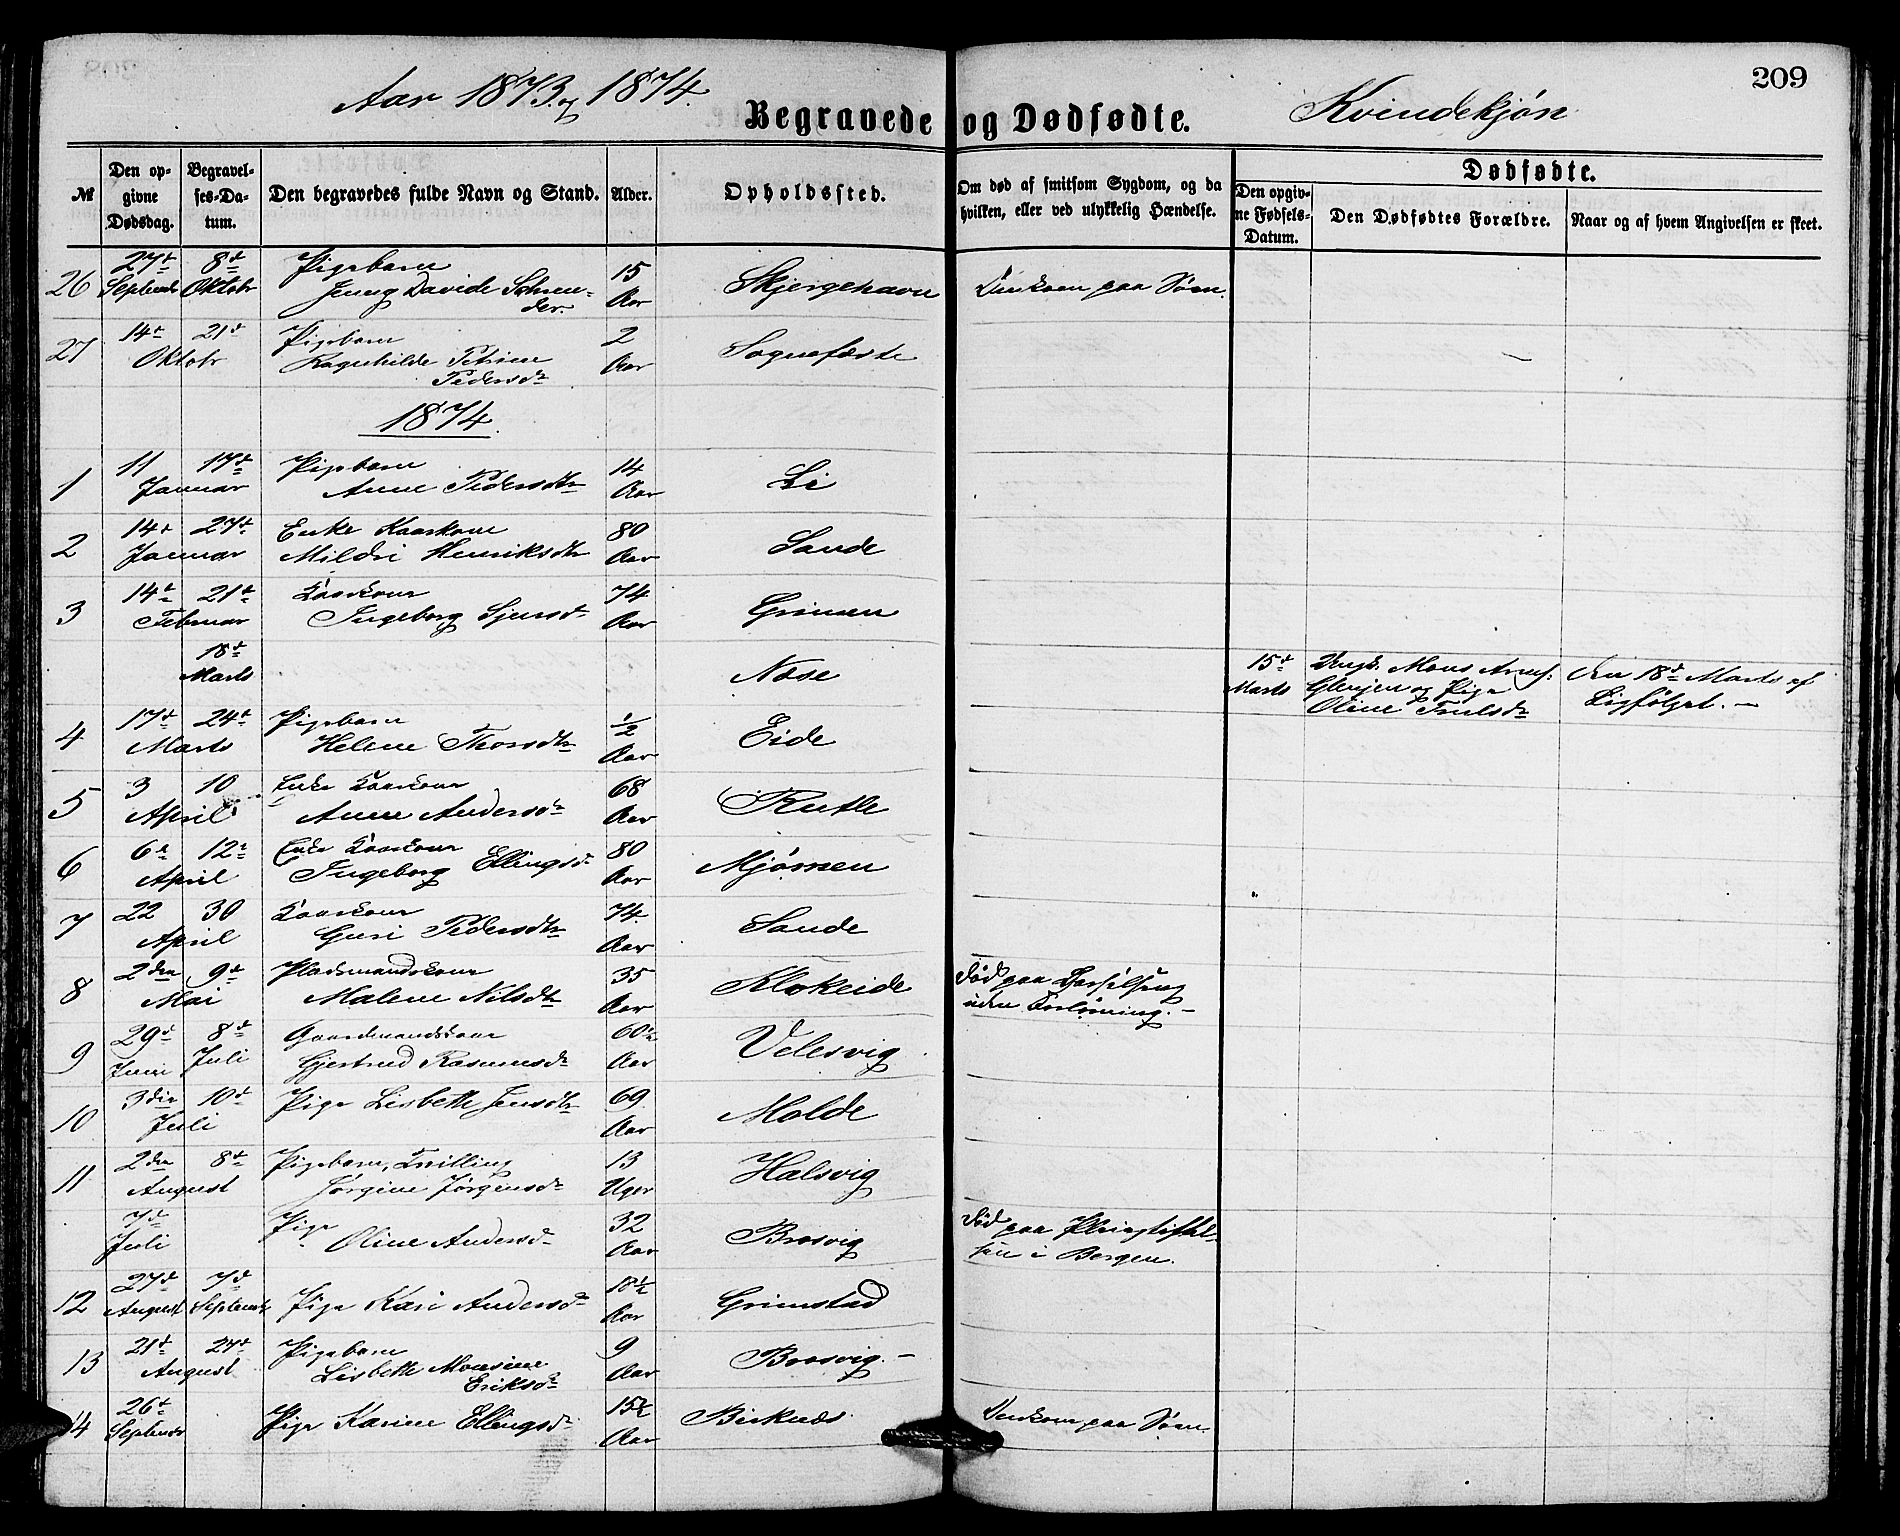 209
Aar 1873 og 1874.
Begravede og Dødfødte.
Kvindekjøn
№
Den opgivne Dødsdag.
Begravelses-Datum.
Den begravedes fulde Navn og Stand.
Alder.
Opholdssted.
Om død af smitsom Sygdom, og da hvilken, eller ved ulykkelig Hændelse.
Dødfødte.
Den opgivne Fødsels-Datum.
Den Dødfødtes Forældre.
Naar og af hvem Angivelsen er skeet.
26 27de Septembr 8de Oktobr Pigebarn 15
Jenny Davide Aar Skjergehavn Omkom paa Søen.
27 14de 21de Pigebarn 2
Oktobr Ragnhilde Petrine Aar Sognefæste
Pedersdtr
1874
1 11 17de Pigebarn 14
Januar Anne Pedersdtr Aar Li
2 14de 27de Enke Kaarkone 80
Januar Mildri Henriksdtr Aar Sande
3 14de 21de Kaarkone 74
Februar Ingeborg Sjursdtr Aar Grinen
18de Marts Nose 15de Marts Ungk. Mons Arnes. den 18de Marts af
og Pige Ligfølget. —
Oline Trulsdtr
4 17de 24de Pigebarn ½
Marts Helene Thorsdtr Aar Eide
5 3 10 Enke Kaarkone 68
April Anne Andersdtr Aar Rutle
6 6te 12te Enke Kaarkone 80
April Ingeborg Ellingsdtr Aar Mjømen
7 22 30 Kaarkone 74
April Guri Pedersdtr Aar Sande
8 2den 9de Pladsmandskone 35
Mai Malene Nilsdtr Aar Klokeide død paa Barselseng
uden Forløsning. —
9 29de 8de Gaardmandskone 60½
Juni Juli Gjertrud Rasmusdtr Aar Velesvig
10 3die 10de Pige Lisbeth Jensdtr 69
Juli Aar Molde
11 2den 8de Pigebarn, Tvilling 13
August Jørgine Jørgensdtr Uger Halsvig
7de Pige 32
Juli Oline Andersdtr Aar Brosvig død paa Pleiestiftelsen
i Bergen.
12 27de 7de 18½
August Septembr Pige Kari Andersdtr Aar Grimstad
13 21de 24de Pigebarn 9
August Lisbeth Monsine Aar Brosvig. —
Eriksdtr
14 26de Pige Karine Ellingsdtr 15½
Septembr Aar Birknes Omkom paa Søen